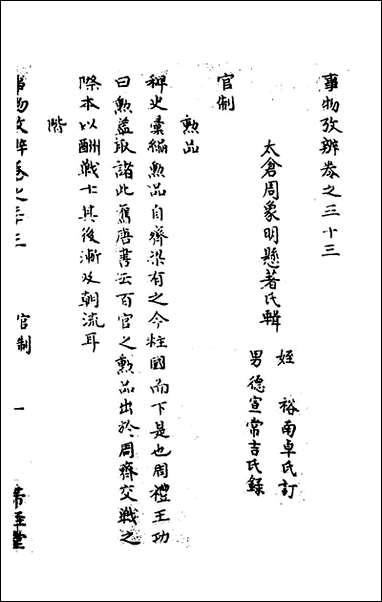 事物攷辨卷之三十三
太倉周象明懸著氏輯
姪 裕南卓氏訂
男德宣常吉氏錄
官制
勲品
稗史彙編勲品自齊梁有之今柱國而下是也周禮王功
曰勲蓋取諸此舊唐書云百官之勲品出於周齊交戰之
際本以酬戰士其後漸及朝流耳
階
事物攷辨卷之三十三 官制 一